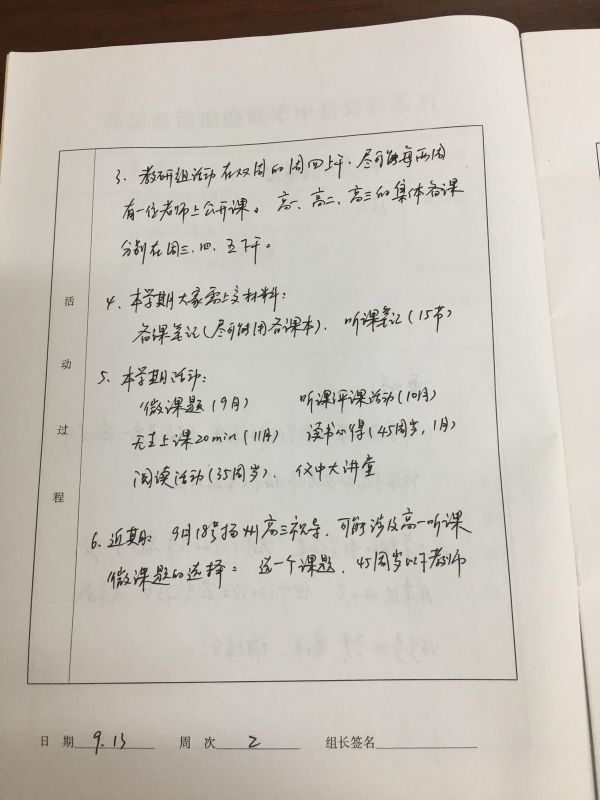 3. 教研组活动在双周的周四上午，尽可能每两周
有一位老师上公开课。高一、高二、高三的集体备课
分别在周三、四、五下午。
4. 本学期大家需上交材料：
备课笔记（尽可能用备课本）. 听课笔记（15节）
5. 本学期活动：
微课题（9月） 听课评课活动（10月）
无生上课20min（11月） 读书心得（45周岁，1月）
阅读活动（35周岁）. 仪中大讲堂
6. 近期：9月18号扬州高三视导，可能涉及高一听课
微课题的选择：选一个课题，45周岁以下教师
活动过程
日 期 9.13 周 次 2 组长签名